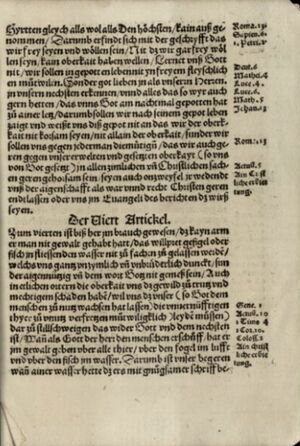 Hyrtten gleych alls wol alls Den höchsten/ kain auß ge-
nommen/ Darumb erfindt sich mit der geschryfft das
wir frey seyen vnd wöllen sein/ Nit dz wir gar frey wöl
len seyn/ kain oberkait haben wellen/ Lernet vnß Gott
nit/ wir sollen in gepotten leben nit yn freyem fleyschlich
en můtwilen/ Sonder got lieben jn als vnsern herren
jn vnsern nechsten erkennen/ vnnd alles das so wyr auch
gern hetten/ das vnns Got am nachtmal gepotten hat
zu ainer letz/ darumb sollen wir nach seinem gepot leben
zaigt vnd weißt vns diß gepot nit an das wir der ober
kait nit korsam seyen/ nit allain der oberkait/ sunder wir
sollen vns gegen jederman diemütigen/ das wir auch ge-
ren gegen vnser erwelten vnd gesetzten oberkayt (so vns
von Got gesetzt) jn allen zimlichen vnd Christlichen sach-
en geren gehorsam sein/ seyen auch onzweyfel jr wedendt
vnß der aigenschafft als war vnnd recht Christen geren
endtlassen oder vns jm Euangeli des berichten dz wirß
seyen.
Der Viert Artickel.
Zum vierten ist biß her jm brauch gewesen/ dz kayn arm
er man nit gewalt gehabt hatt/ das willpret gefigel oder
fisch jn fliessenden wasser nit zu fachen zu gelassen werdẽ/
welchs vns gantz vnzymlich vñ vnbrüderlich dunckt/ sun
der aigennützig vñ dem wort Gotz nit gemeß sein/ Auch
jn etlichen ottern die oberkait vns dz gewild zů trutz vnd
mechtigem schaden habẽ/ wil vns dz vnser (so Got dem
menschen zu nutz wachsen hat lassen) die vnuernüfftigen
thyer zů vnnutz verfretzen můtwiligklich/ leydẽ müssen)
dar zu stillschweigen das wider Gott vnd dem nechsten
ist/ Wañ als Gott der herr den menschen erschůff/ hat er
jm gewalt geben vber alle thier/ vber den fogel im lufft
vnd vber den fisch jm wasser. Darumb ist vnser begeren
wañ ainer wasser hette dz ers mit gnůgsamer schrifft be-
Roma. 13
Sapien. 6.
1. Petri. 2
Deut. 6
Mathei. 4
Luce. 4
Luce. 6
Math. 5
Johan. 13
Roma: 13
Actuũ. 5
Gene. 1
Actuũ. 10
1 Timo 4
1 Cor. 10.
Coloss. 2